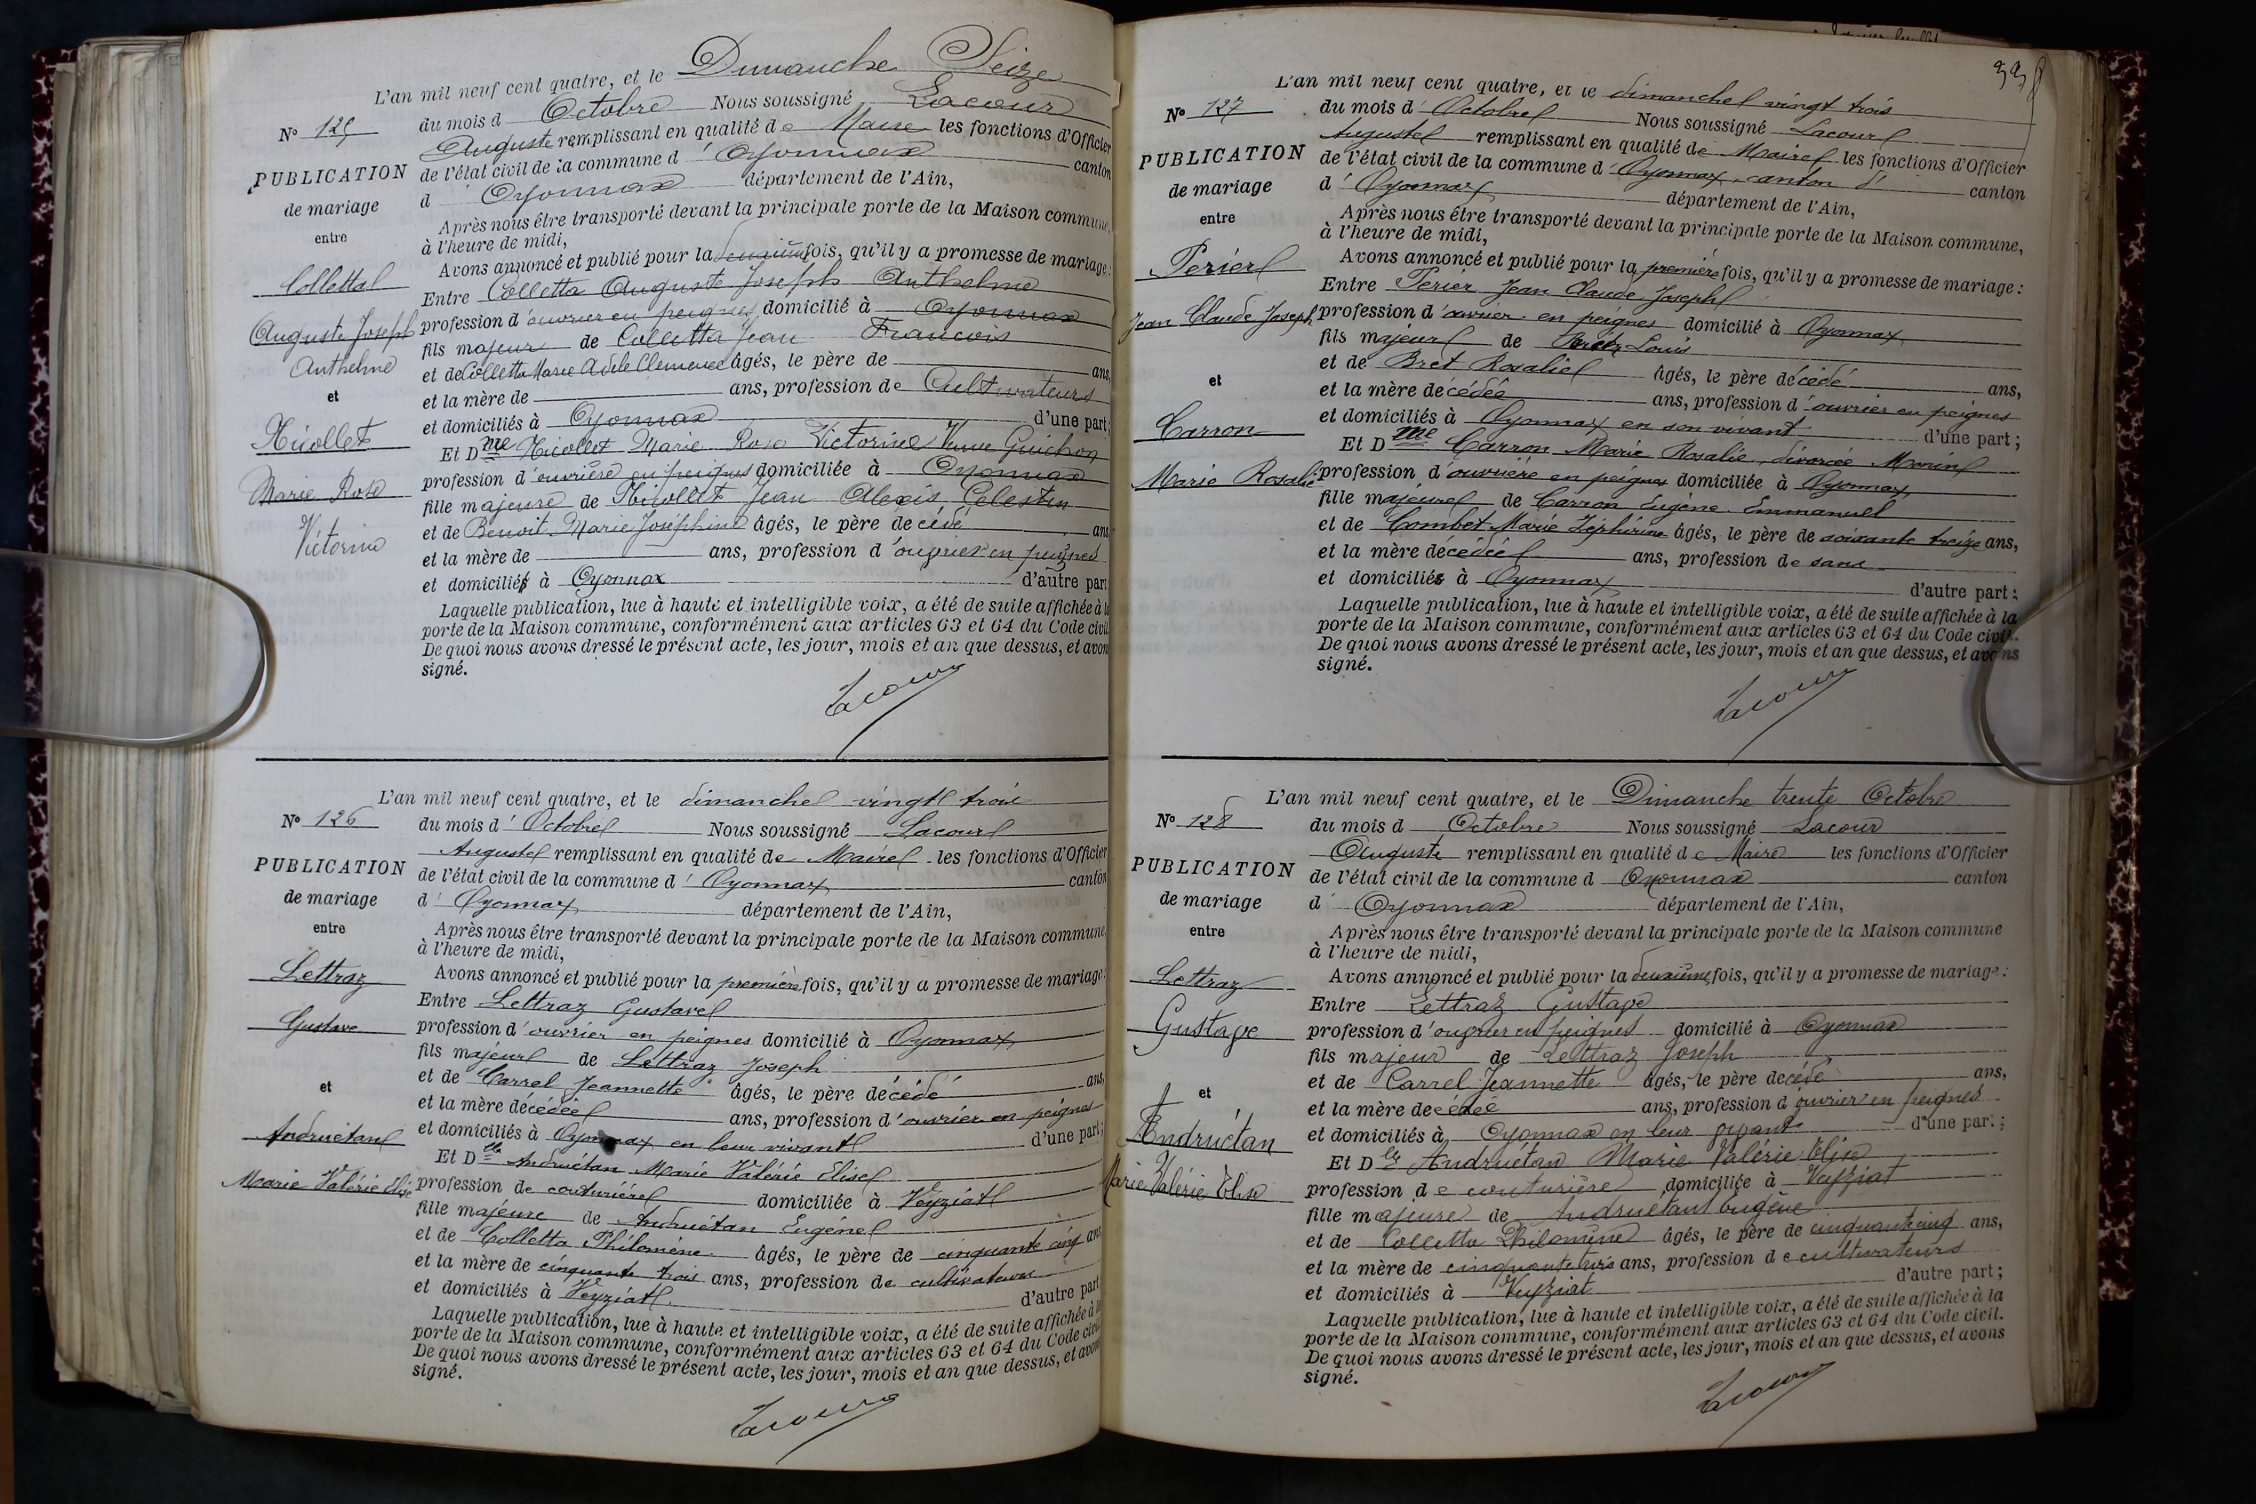 L'an mil neuf cent quatre, et le Dimanche Seize
N° 125 du mois d Octobre Nous soussigné Lacour
Auguste remplissant en qualité de Maire les fonctions d'Officier
PUBLICATION de l'état civil de la commune d' Oyonnax canton
de mariage d' Oyonnax département de l'Ain,
entre Après nous être transporté devant la principale porte de la Maison commune,
à l'heure de midi,
Avons annoncé et publié pour la deuxième fois, qu'il y a promesse de mariage:
Colletta Entre Colletta Auguste Joseph Anthelme
Auguste Joseph profession d'ouvrier en peignes domicilié à Oyonnax
Anthelme fils majeur de Colletta Jean Francois
et de Colletta Marie Adele Clemence âgés, le père de ans,
et et la mère de ans, profession de Cultivateurs
et domiciliés à Oyonnax d'une part;
Nicollet Et Dme Nicollet Marie Rose Victorine Veuve Guichon
Marie Rose profession d'ouvrière en peignes domiciliée à Oyonnax
Victorine fille majeure de Nicollet Jean Alexis Celestin
et de Benoit Marie Joséphine âgés, le père decédé ans
et la mère de ans, profession d'ouvrier en peignes
et domiciliés à Oyonnax d'autre part
Laquelle publication, lue à haute et intelligible voix, a été de suite affichée à la
porte de la Maison commune, conformément aux articles 63 et 64 du Code civil
De quoi nous avons dressé le présent acte, les jour, mois et an que dessus, et avons
signé.
Lacour
L'an mil neuf cent quatre, et le dimanche vingt trois
N° 126 du mois d' Octobre Nous soussigné Lacour
Auguste remplissant en qualité de Maire les fonctions d'Officier
PUBLICATION de l'état civil de la commune d' Oyonnax canton
de mariage d' Oyonnax département de l'Ain,
entre Après nous être transporté devant la principale porte de la Maison commune
à l'heure de midi,
Lettraz Avons annoncé et publié pour la première fois, qu'il y a promesse de mariage:
Entre Lettraz Gustave
Gustave profession d'ouvrier en peignes domicilié à Oyonnax
fils majeur de Lettraz Joseph
et et de Carrel Jeannette âgés, le père décédé ans,
et la mère décédée ans, profession d'ouvrier en peignes
Andruétan et domiciliés à Oyonnax en leur vivant d'une part;
Et Dlle Andruétan Marie Valérie Elise
Marie Valérie Elise profession de couturière domiciliée à Veyziat
fille majeure de Andruétan Eugène
et de Colletta Philomène âgés, le père de cinquante cinq ans
et la mère de cinquante trois ans, profession de cultivateurs
et domiciliés à Veyziat d'autre part
Laquelle publication, lue à haute et intelligible voix, a été de suite affichée à la
porte de la Maison commune, conformément aux articles 63 et 64 du Code civil
De quoi nous avons dressé le présent acte, les jour, mois et an que dessus, et avons
signé.
Lacour
L'an mil neuf cent quatre, et le dimanche vingt trois
N° 127 du mois d' Octobre Nous soussigné Lacour
Auguste remplissant en qualité de Maire les fonctions d'Officier
PUBLICATION de l'état civil de la commune d' Oyonnax canton d' canton
de mariage d' Oyonnax département de l'Ain,
entre Après nous être transporté devant la principale porte de la Maison commune,
à l'heure de midi,
Périer Avons annoncé et publié pour la première fois, qu'il y a promesse de mariage:
Entre Périer Jean Claude Joseph
Jean Claude Joseph profession d'ouvrier en peignes domicilié à Oyonnax
fils majeur de Louis
et et de Bret Rosalie âgés, le père décédé ans,
et la mère décédée ans, profession d'ouvrier en peignes
Carron et domiciliés à Oyonnax en son vivant d'une part;
Et Dme Carron Marie Rosalie, divorcée
Marie Rosalie profession d'ouvrière en peignes domiciliée à Oyonnax
fille majeure de Carron Eugène Emmanuel
et de Combet Marie Zéphirine âgés, le père de soixante treize ans,
et la mère décédée ans, profession de sans
et domiciliés à Oyonnax d'autre part;
Laquelle publication, lue à haute et intelligible voix, a été de suite affichée à la
porte de la Maison commune, conformément aux articles 63 et 64 du Code civil.
De quoi nous avons dressé le présent acte, les jour, mois et an que dessus, et avons
signé.
Lacour
L'an mil neuf cent quatre, et le Dimanche trente Octobre
N° 128 du mois d Octobre Nous soussigné Lacour
Auguste remplissant en qualité de Maire les fonctions d'Officier
PUBLICATION de l'état civil de la commune d Oyonnax canton
de mariage d' Oyonnax département de l'Ain,
entre Après nous être transporté devant la principale porte de la Maison commune
à l'heure de midi,
Lettraz Avons annoncé et publié pour la deuxième fois, qu'il y a promesse de mariage:
Entre Lettraz Gustave
Gustave profession d'ouvrier en peignes domicilié à Oyonnax
fils majeur de Lettraz Joseph
et et de Carrel Jeannette âgés, le père decédé ans,
et la mère decédée ans, profession d'ouvrier en peignes
Andruétan et domiciliés à Oyonnax en leur vivant d'une part;
Et Dlle Andruétan Marie Valérie Elise
Marie Valérie Elise profession de couturière domiciliée à Veyziat
fille majeure de Andruétan Eugène
et de Colletta Philomène âgés, le père de cinquante cinq ans,
et la mère de cinquante trois ans, profession de cultivateurs
et domiciliés à Veyziat d'autre part;
Laquelle publication, lue à haute et intelligible voix, a été de suite affichée à la
porte de la Maison commune, conformément aux articles 63 et 64 du Code civil.
De quoi nous avons dressé le présent acte, les jour, mois et an que dessus, et avons
signé.
Lacour